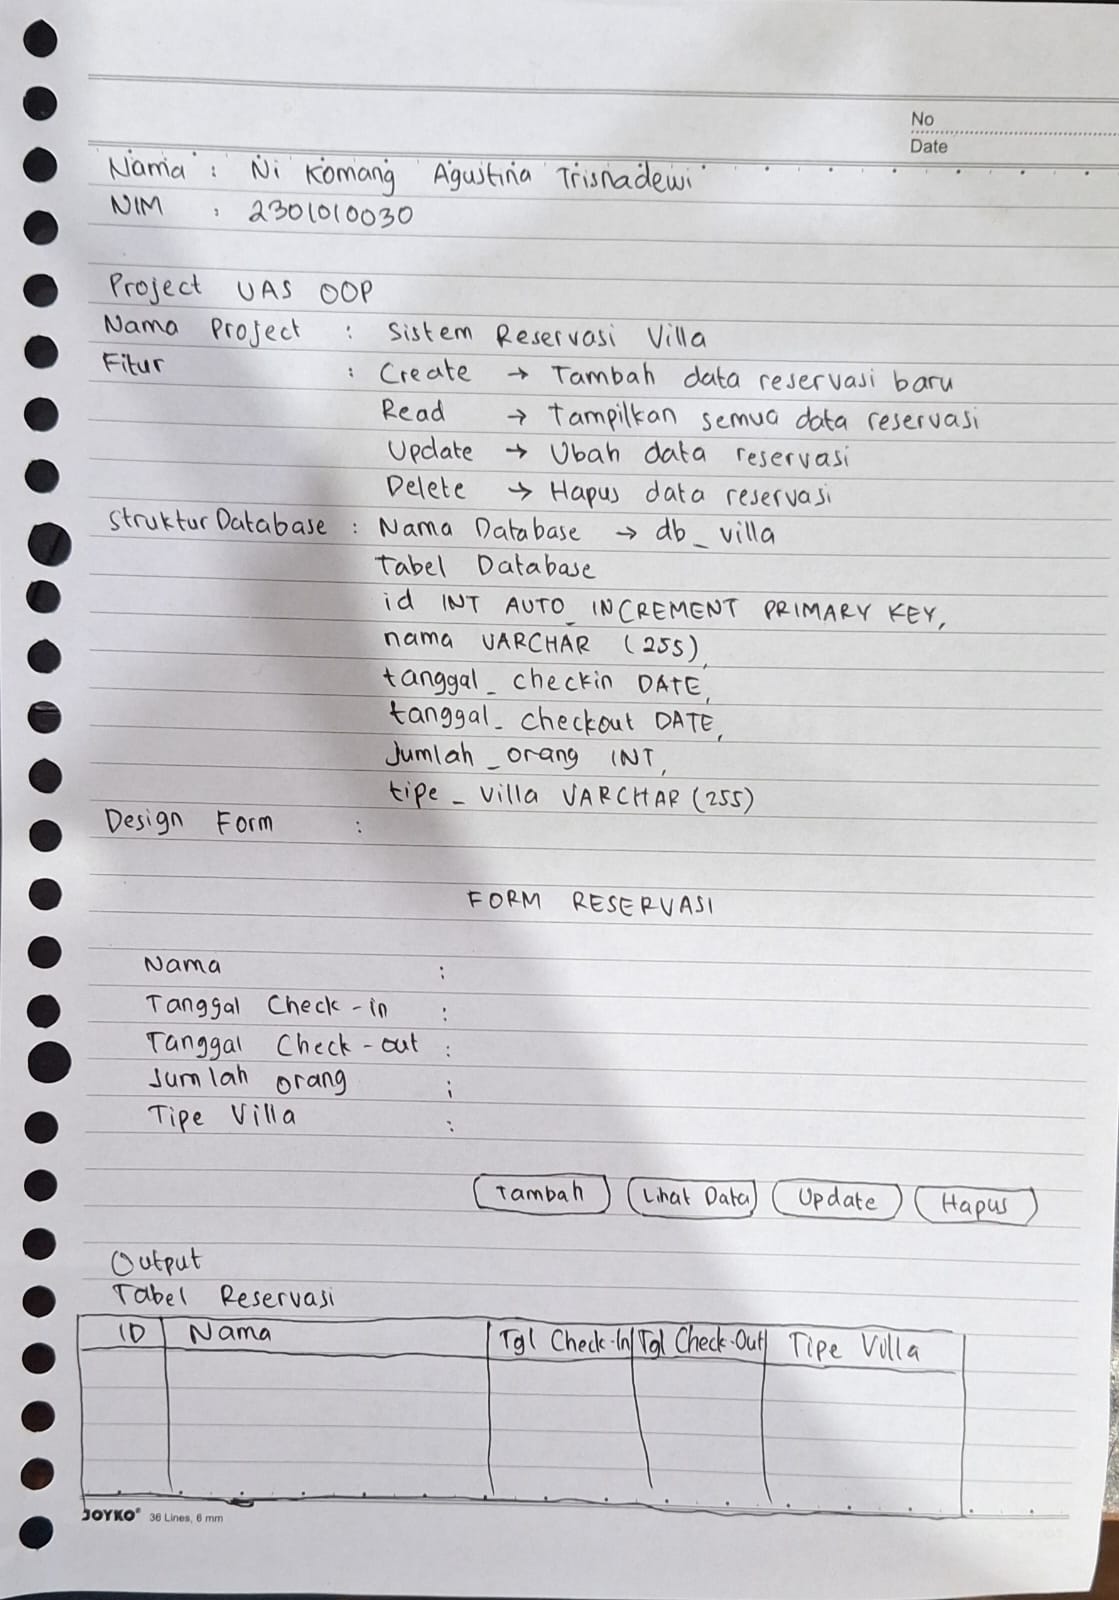 No
Date
Nama : Ni Komang Agustina Trisnadewi
NIM : 2301010030
Project UAS OOP
Nama Project : Sistem Reservasi Villa
Fitur : Create → Tambah data reservasi baru
Read → Tampilkan semua data reservasi
Update → Ubah data reservasi
Delete → Hapus data reservasi
Struktur Database : Nama Database → db_villa
Tabel Database
id INT AUTO_INCREMENT PRIMARY KEY,
nama VARCHAR (255),
tanggal_checkin DATE,
tanggal_checkout DATE,
Jumlah_orang INT,
tipe_villa VARCHAR (255)
Design Form :
FORM RESERVASI
Nama :
Tanggal Check-in :
Tanggal Check-out :
Jumlah orang :
Tipe Villa :
Tambah Lihat Data Update Hapus
Output
Tabel Reservasi
ID Nama Tgl Check-In Tgl Check-Out Tipe Villa
JOYKO® 36 Lines, 6 mm